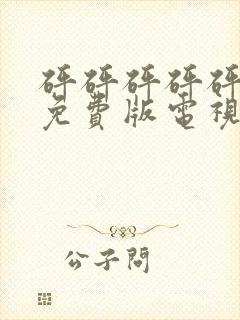 砰砰砰砰砰
免費版電視
公子問